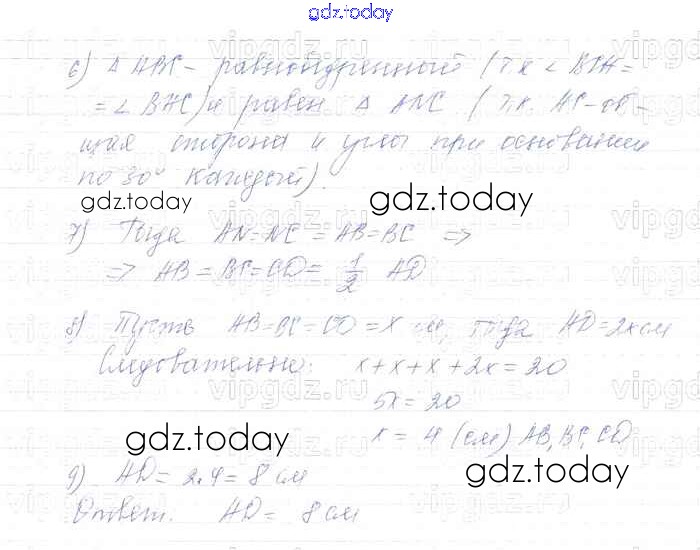 gdz.today
6) △ ABC - равнобедренный (т.к ∠ BCA =
= ∠ BAC) и равен △ ANC (т.к. AC - об-
щая сторона и углы при основании
по 30° каждый).
gdz.today
gdz.today
7) Тогда AN = NC = AB = BC ⇒
⇒ AB = BC = CD = 1/2 AD
8) Пусть AB = BC = CD = x см, тогда AD = 2x см
Следовательно: x + x + x + 2x = 20
5x = 20
x = 4 (см) AB, BC, CD
gdz.today
9) AD = 2.4 = 8 см
gdz.today
Ответ: AD = 8 см